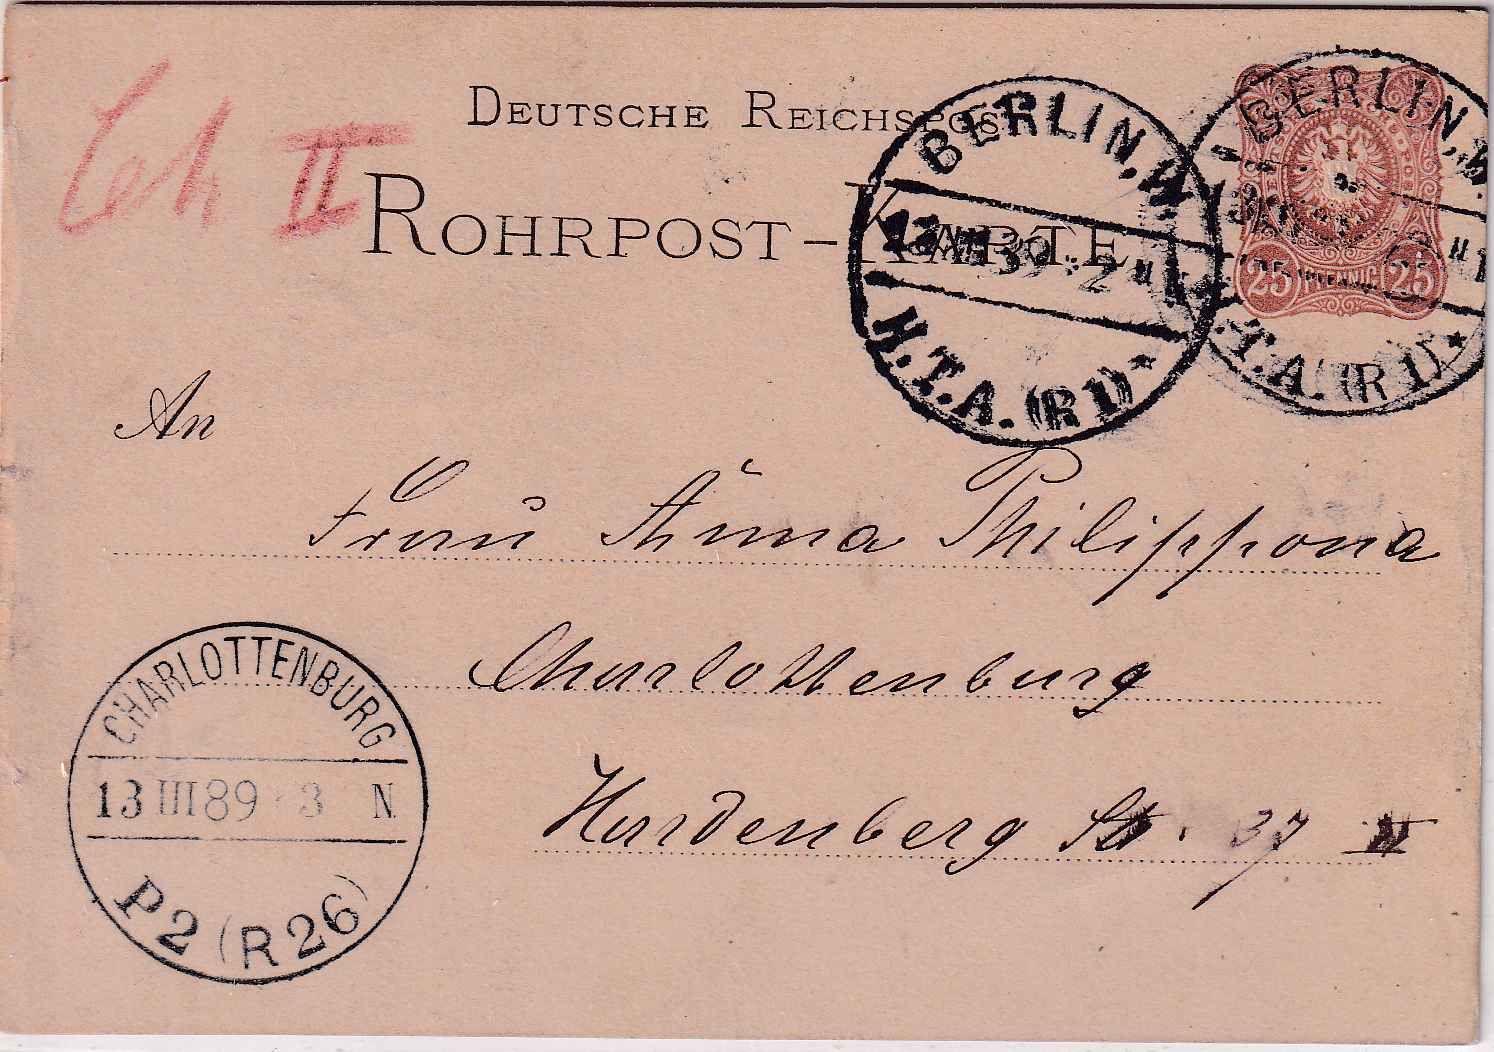 Ceh II
DEUTSCHE REICHSPOST
ROHRPOST-KARTE
BERLIN, W.
13 III 89 * 2
H.T.A. (R1) *
BERLIN, W.
H.T.A. (R1) *
25 PFENNIG 25
An
Frau Anna Philippona
Charlottenburg
Hardenberg Str. 37 II
CHARLOTTENBURG
13 III 89 3 N.
P2 (R26)